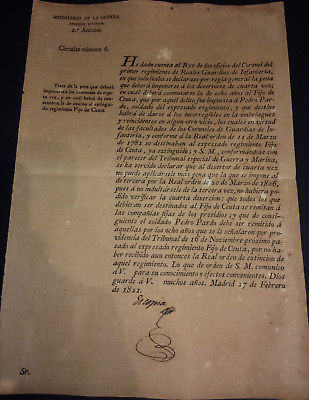 MINISTERIO DE LA GUERRA
2.ª Seccion.
Circular número 6.
Trata de la pena que deberá
imponerse á los desertores de cuarta
vez, y en cuál habrá de conmutarse
la de destino al extinguido
regimiento Fijo de Ceuta.
He dado cuenta al REY de dos oficios del Coronel del
primer regimiento de Reales Guardias de Infantería,
en que solicitaba se declarase por regla general la pena
que deberá imponerse á los desertores de cuarta vez;
en cuál habrá conmutarse la de ocho años al Fijo de
Ceuta, que por aquel delito fue impuesta á Pedro Pardo,
soldado del expresado regimiento, y qué destino
habrá de darse á los incorregibles en la embriaguez
y reincidentes en algun otro vicio, los cuales en virtud
de las facultades de los Coroneles de Guardias de Infantería,
y conforme á la Real orden de 21 de Marzo
de 1781 se destinaban al expresado regimiento Fijo de
Ceuta, ya extinguido; y S. M., conformándose con
el parecer del Tribunal especial de Guerra y Marina,
se ha servido declarar que al desertor de cuarta vez
no puede aplicársele mas pena que la que se impone al
de tercera por la Real orden de 20 de Marzo de 1806,
pues á no indultársele de la tercera vez, no hubiera podido
verificar la cuarta desercion: que todos los que
debieran ser destinados al Fijo de Ceuta se remitan á
las compañías fijas de los presidios; y que de consiguiente
el soldado Pedro Pardo debe ser remitido á
aquellas por los ocho años que se le señalaron por providencia
del Tribunal de 16 de Noviembre próximo pasado
al expresado regimiento Fijo de Ceuta, por no haber
recibido aun entonces la Real orden de extincion de
aquel regimiento. Lo que de orden de S. M. comunico
á V. para su conocimiento y efectos convenientes. Dios
guarde á V. muchos años. Madrid 27 de Febrero
de 1821.
Sr.